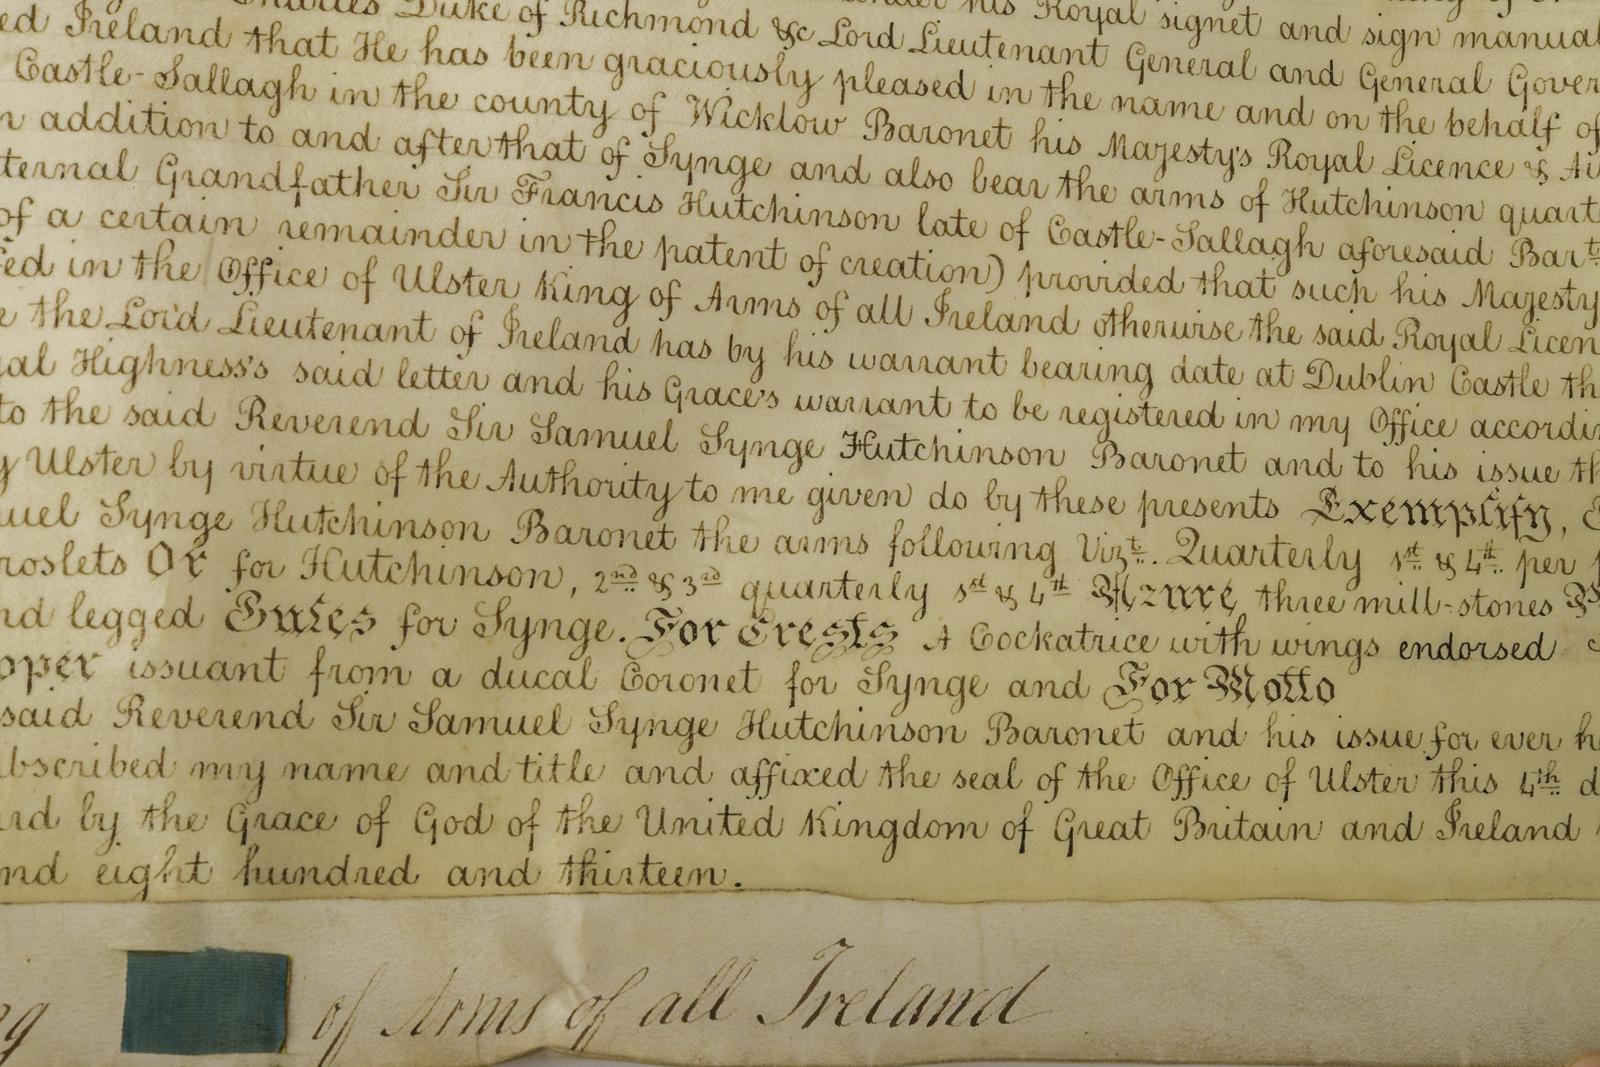 Charles Duke of Richmond &c Lord Lieutenant General and General Gover
his Royal signet and sign manual
ed Ireland that He has been graciously pleased in the name and on the behalf of
Castle-Sallagh in the county of Wicklow Baronet his Majesty's Royal Licence & Au
n addition to and after that of Synge and also bear the arms of Hutchinson quart
ternal Grandfather Sir Francis Hutchinson late of Castle-Sallagh aforesaid Bart.
of a certain remainder in the patent of creation) provided that such his Majesty
ed in the Office of Ulster King of Arms of all Ireland otherwise the said Royal Licen
e the Lord Lieutenant of Ireland has by his warrant bearing date at Dublin Castle th
yal Highness's said letter and his Grace's warrant to be registered in my Office accordin
to the said Reverend Sir Samuel Synge Hutchinson Baronet and to his issue th
y Ulster by virtue of the Authority to me given do by these presents Exemplify,
uel Synge Hutchinson Baronet the arms following Vizt. Quarterly 1st & 4th per p
roslets Or for Hutchinson, 2nd & 3rd quarterly 1st & 4th Azure, three mill-stones
nd legged Gules for Synge. For Crests A Cockatrice with wings endorsed
oper issuant from a ducal Coronet for Synge and For Motto
said Reverend Sir Samuel Synge Hutchinson Baronet and his issue for ever h
ubscribed my name and title and affixed the seal of the Office of Ulster this 4th d
ird by the Grace of God of the United Kingdom of Great Britain and Ireland
nd eight hundred and thirteen.
ng of Arms of all Ireland